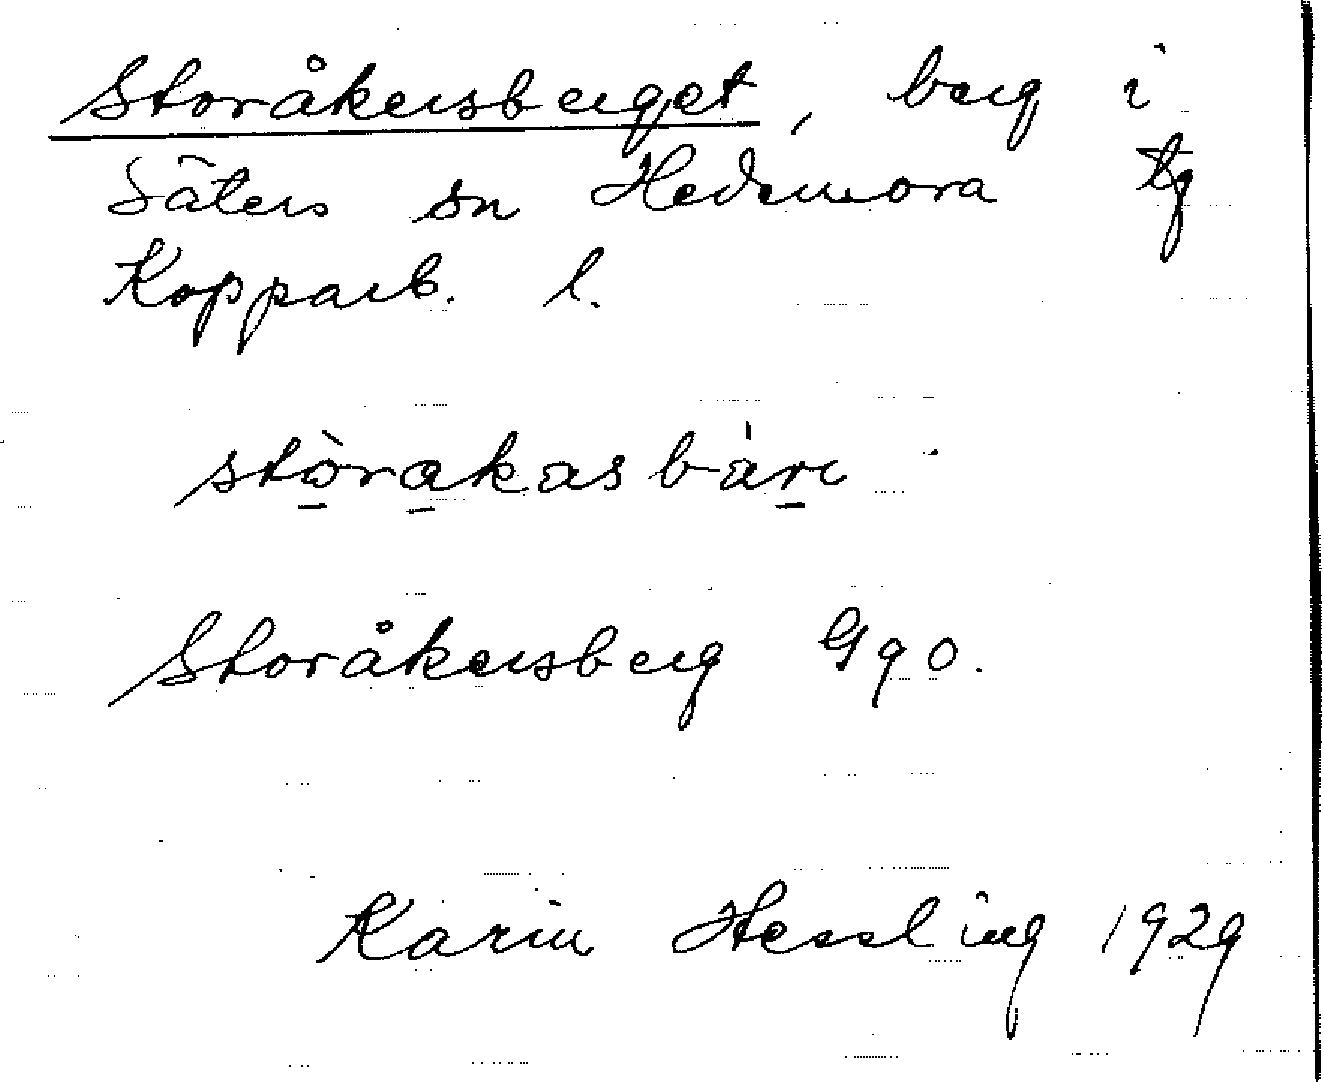 Storåkersberget, berg i
Säters sn Hedemora tg
Kopparb. l.
stòrakasbàrι
Storåkersberg Ggo.
Karin Hessling 1929